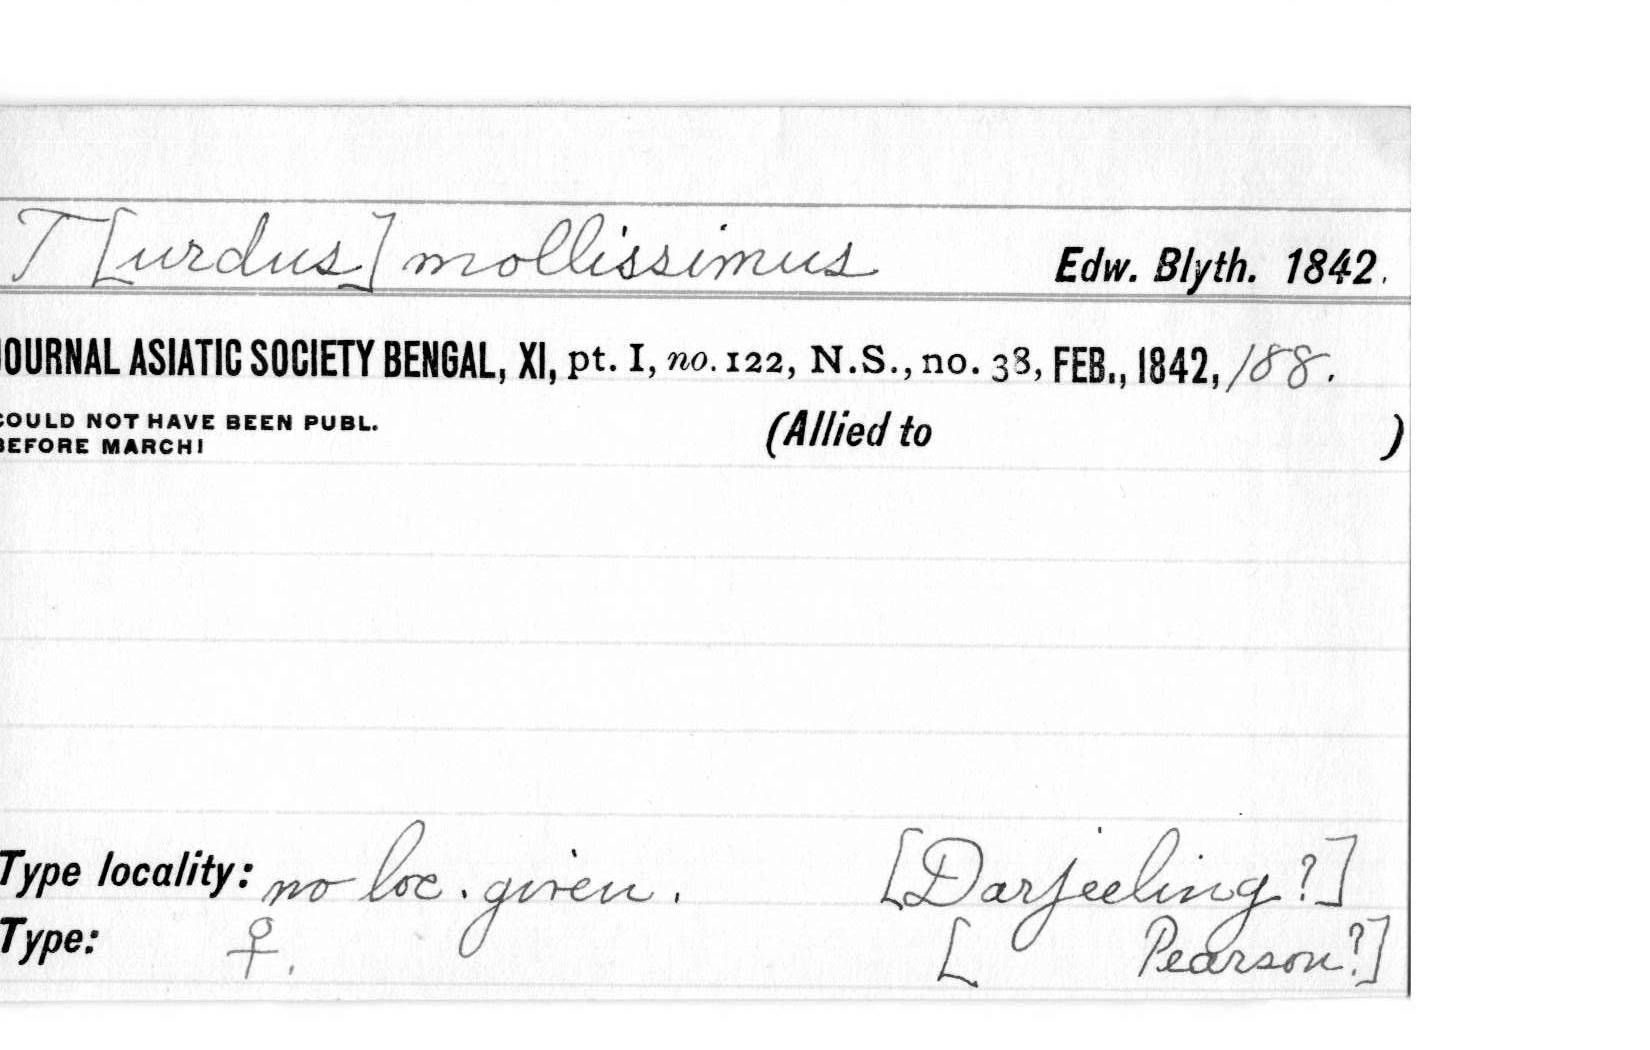 T[urdus] mollissimus Edw. Blyth. 1842.
JOURNAL ASIATIC SOCIETY BENGAL, XI, pt. I, no. 122, N.S., no. 38, FEB., 1842, 188.
COULD NOT HAVE BEEN PUBL. (Allied to )
BEFORE MARCH!
Type locality: no loc. given. [Darjeeling?]
Type: ♀. [ Pearson?]